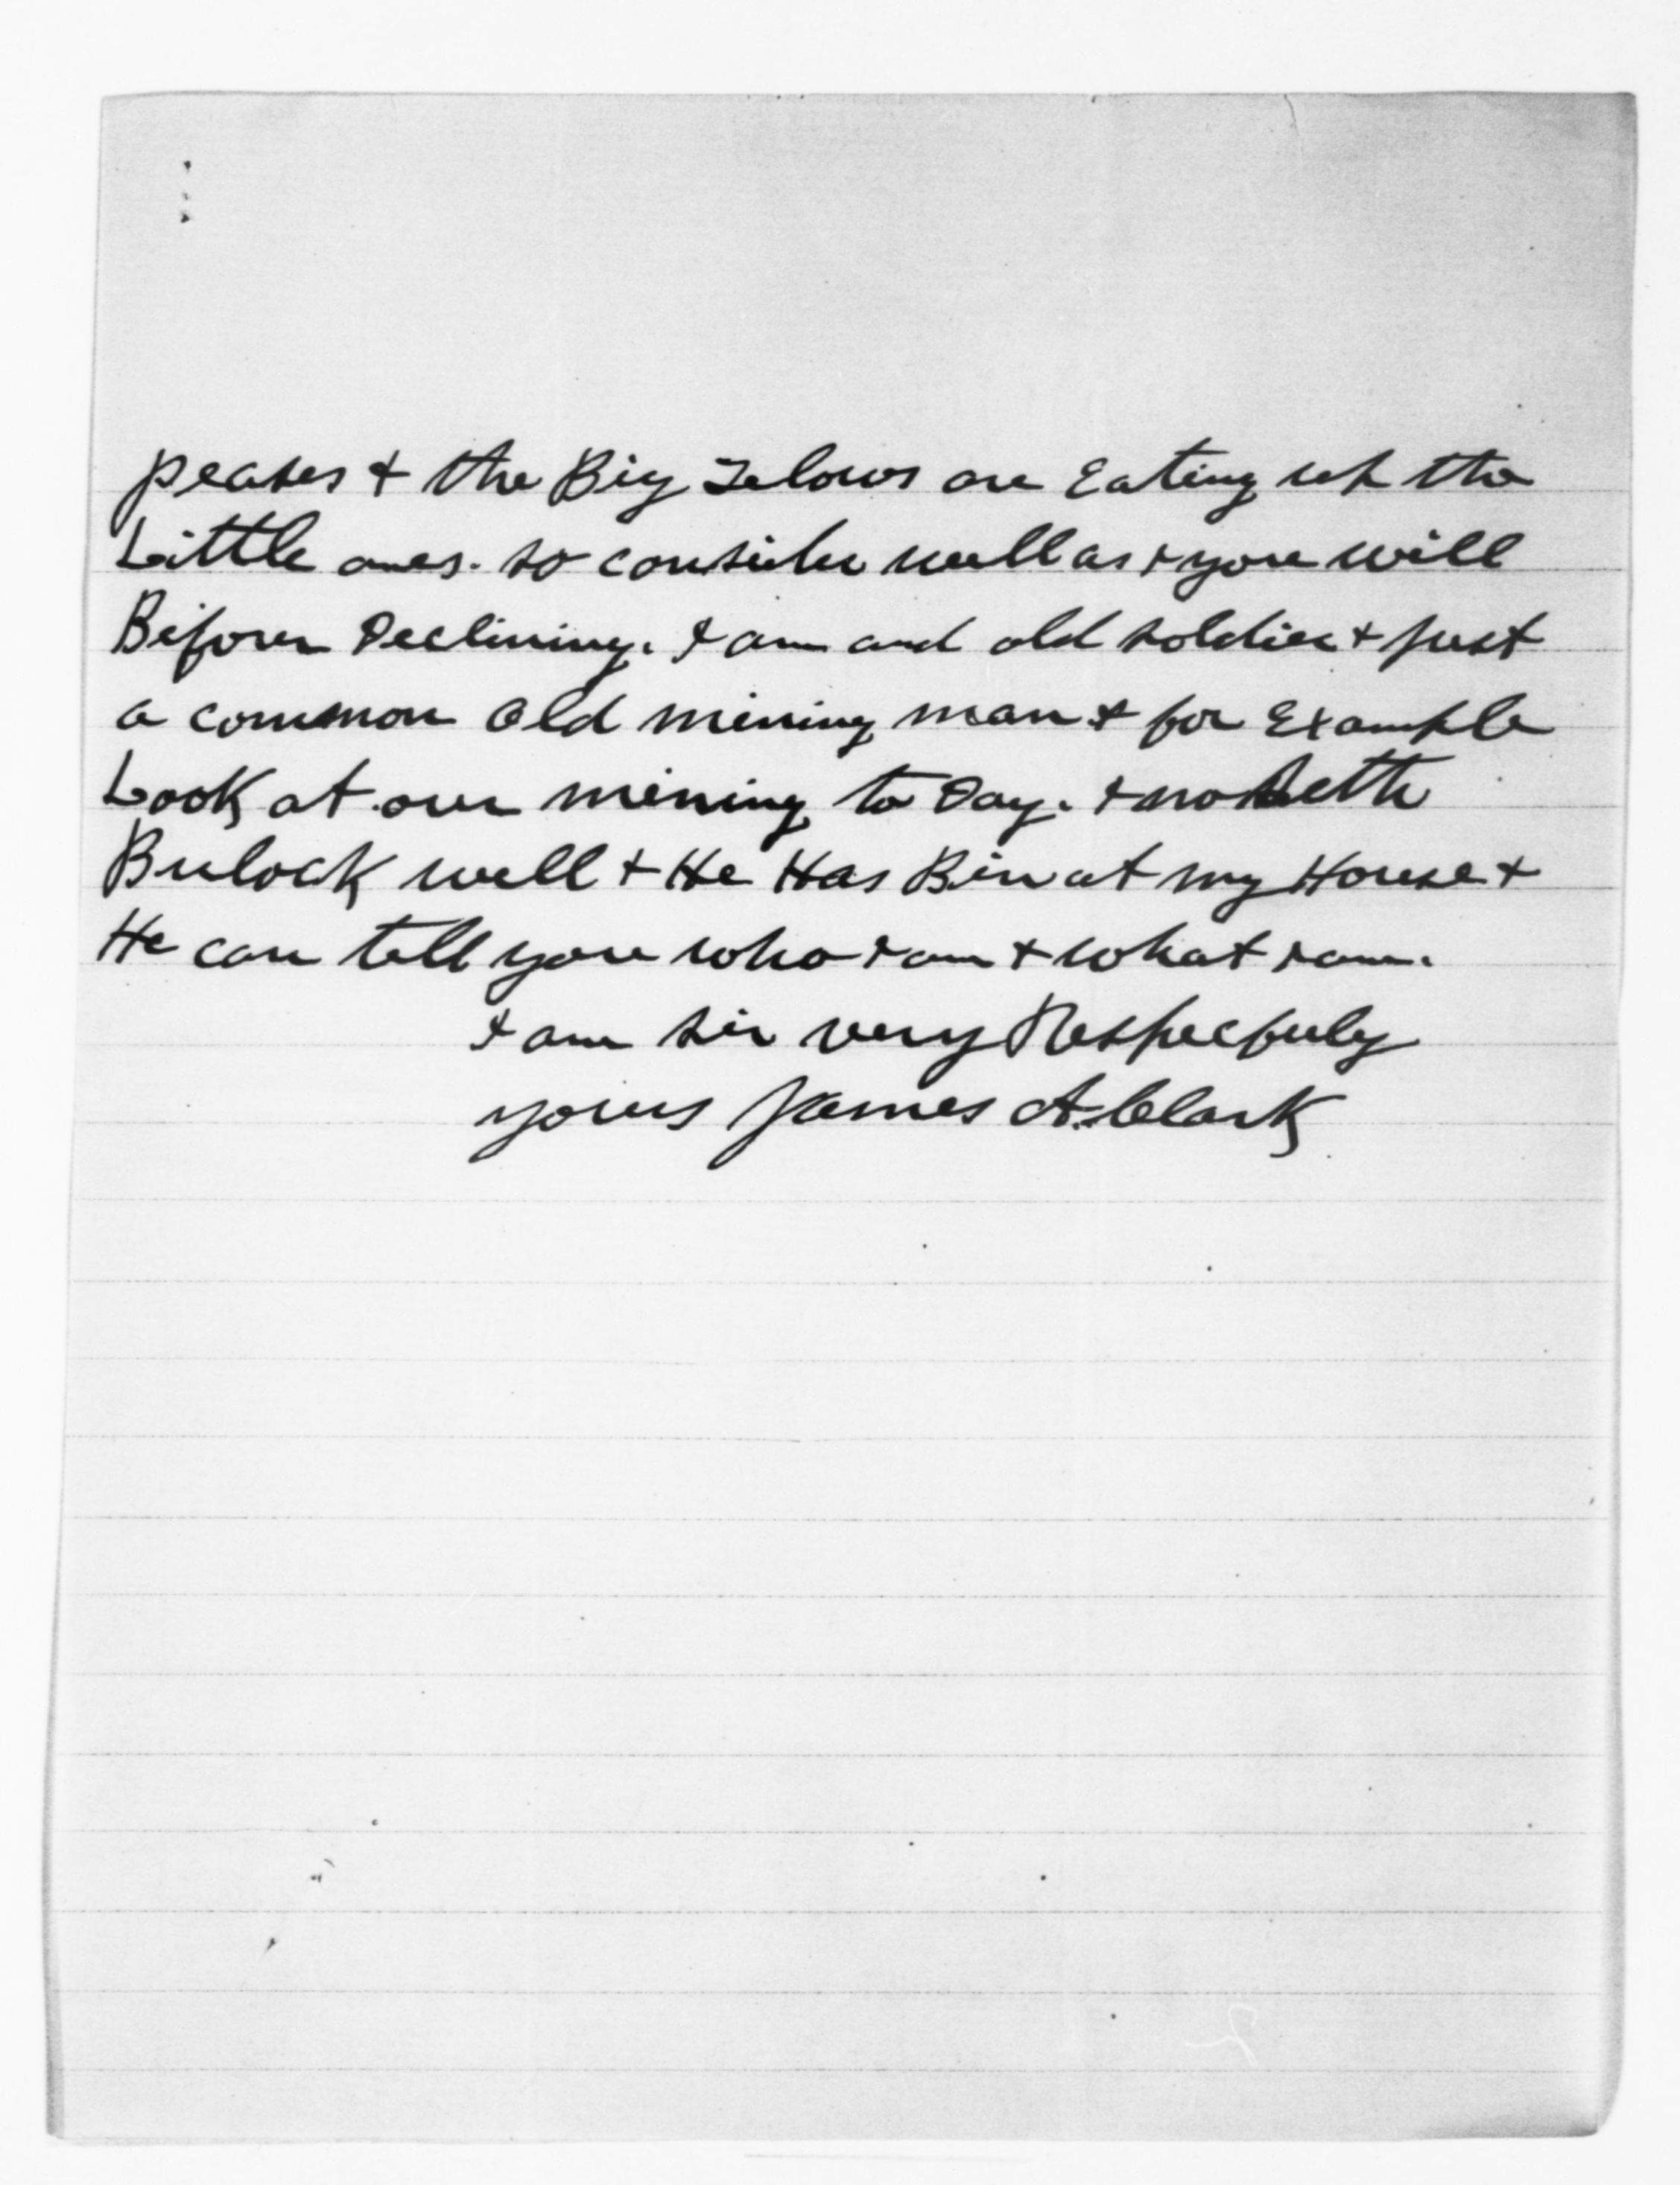 peases & the Big Felows are Eating up the
Little ones. so consider well as & you will
Before Declining. I am and old soldier & Just
a common old mining man & for Example
Look at our mining to Day. I no Seth
Bulock well & He Has Bin at my House &
He can tell you who I am & what I am.
I am sir very Respecfuly
yours James A. Clark